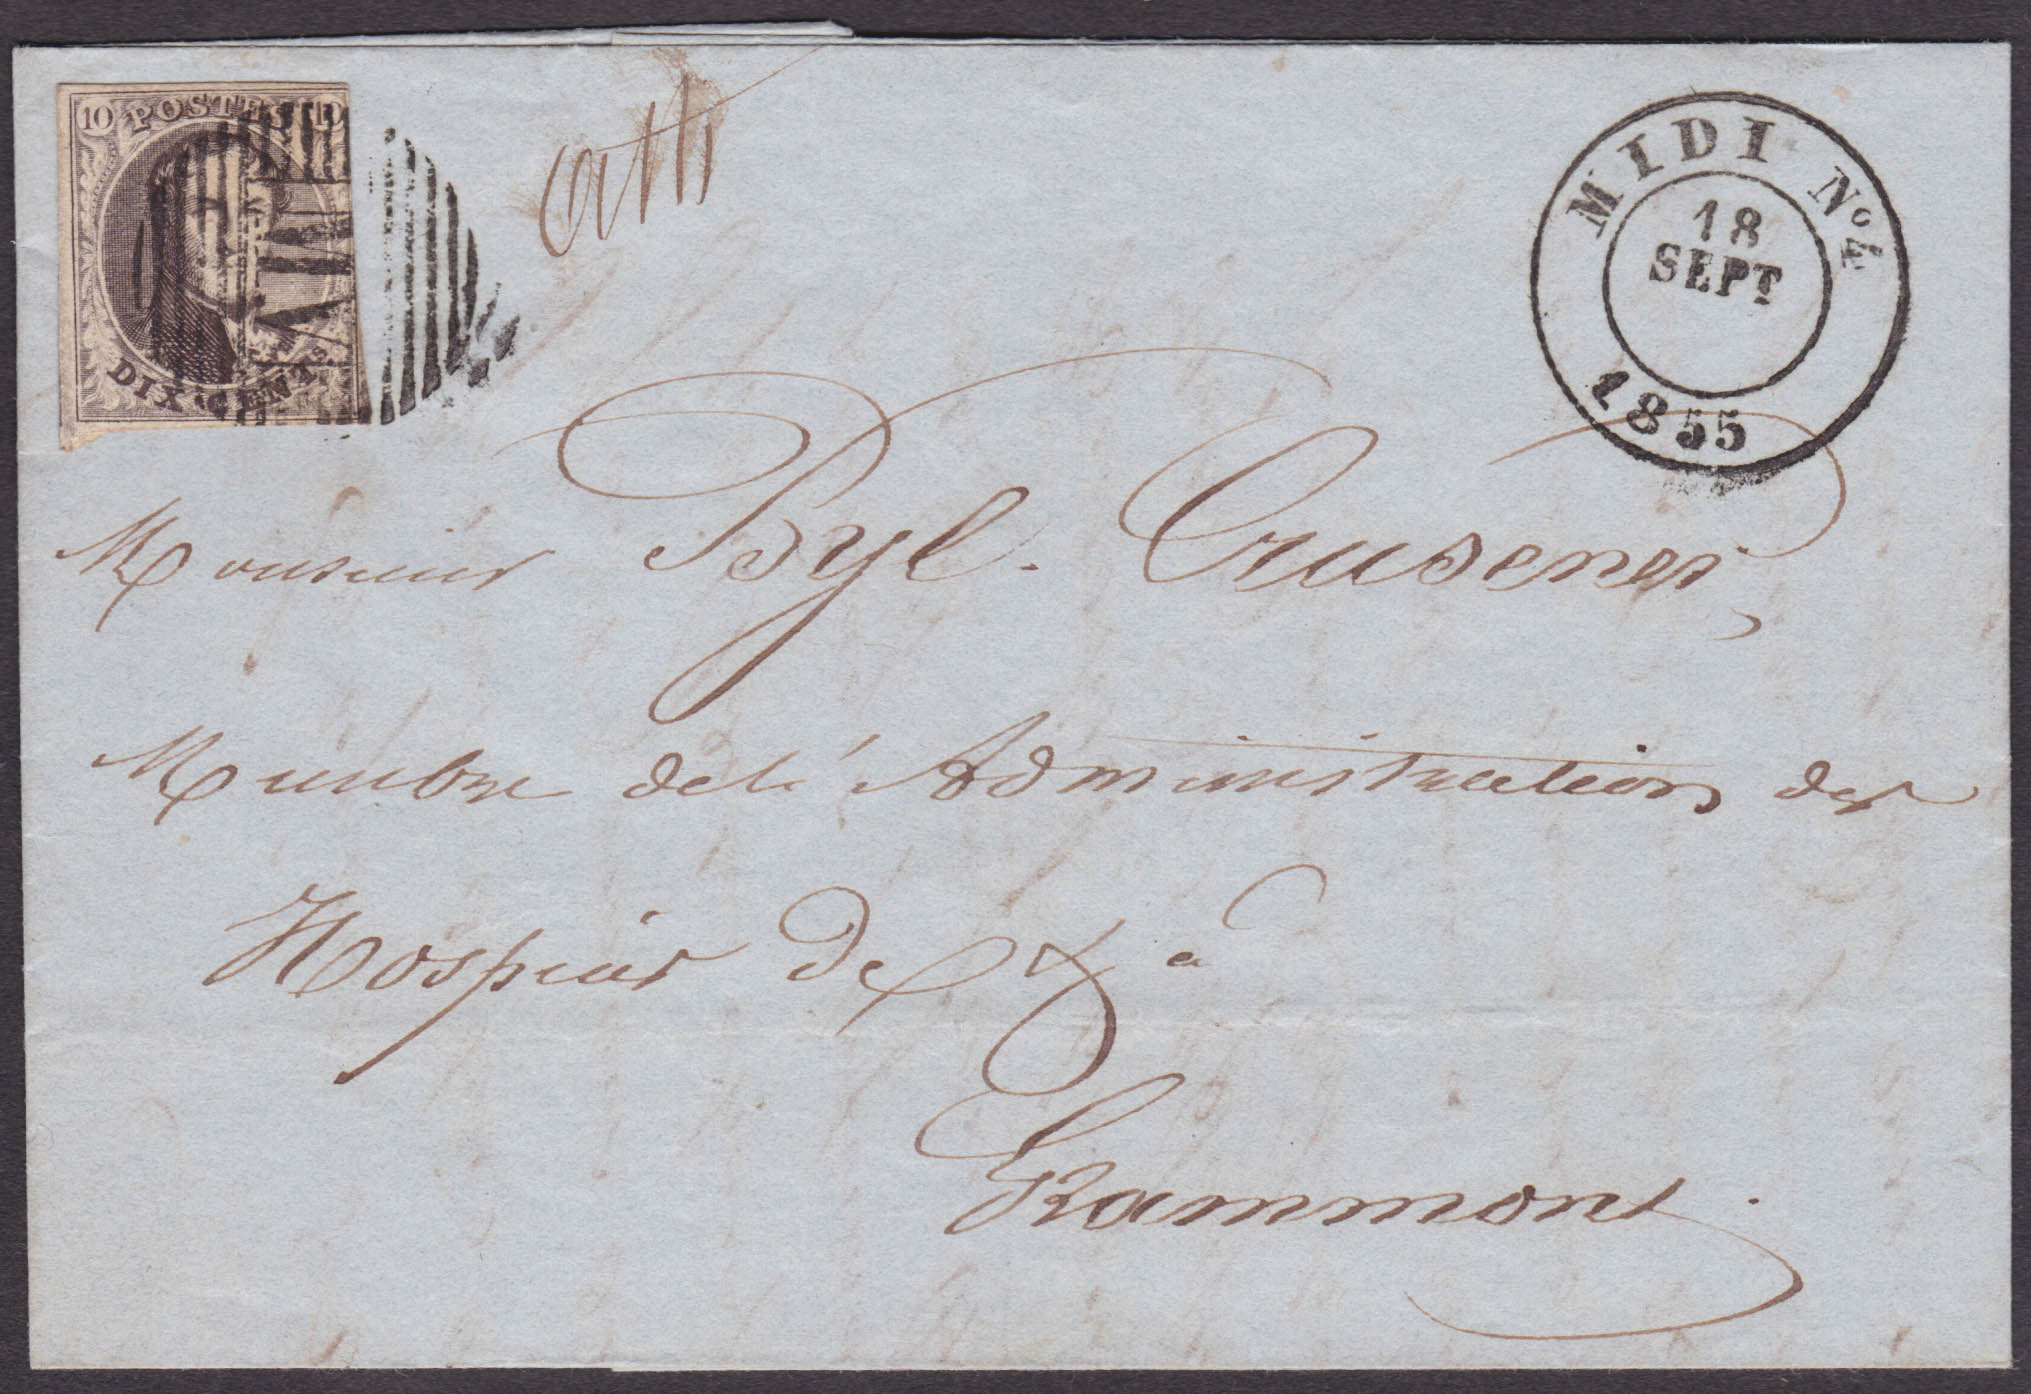 10 POSTES 10
DIX CENTS.
MIDI N° 4
18
SEPT
1855
Monsieur Byl. Crusener,
Membre de l'Administration des
Hospices de &a
Grammont.